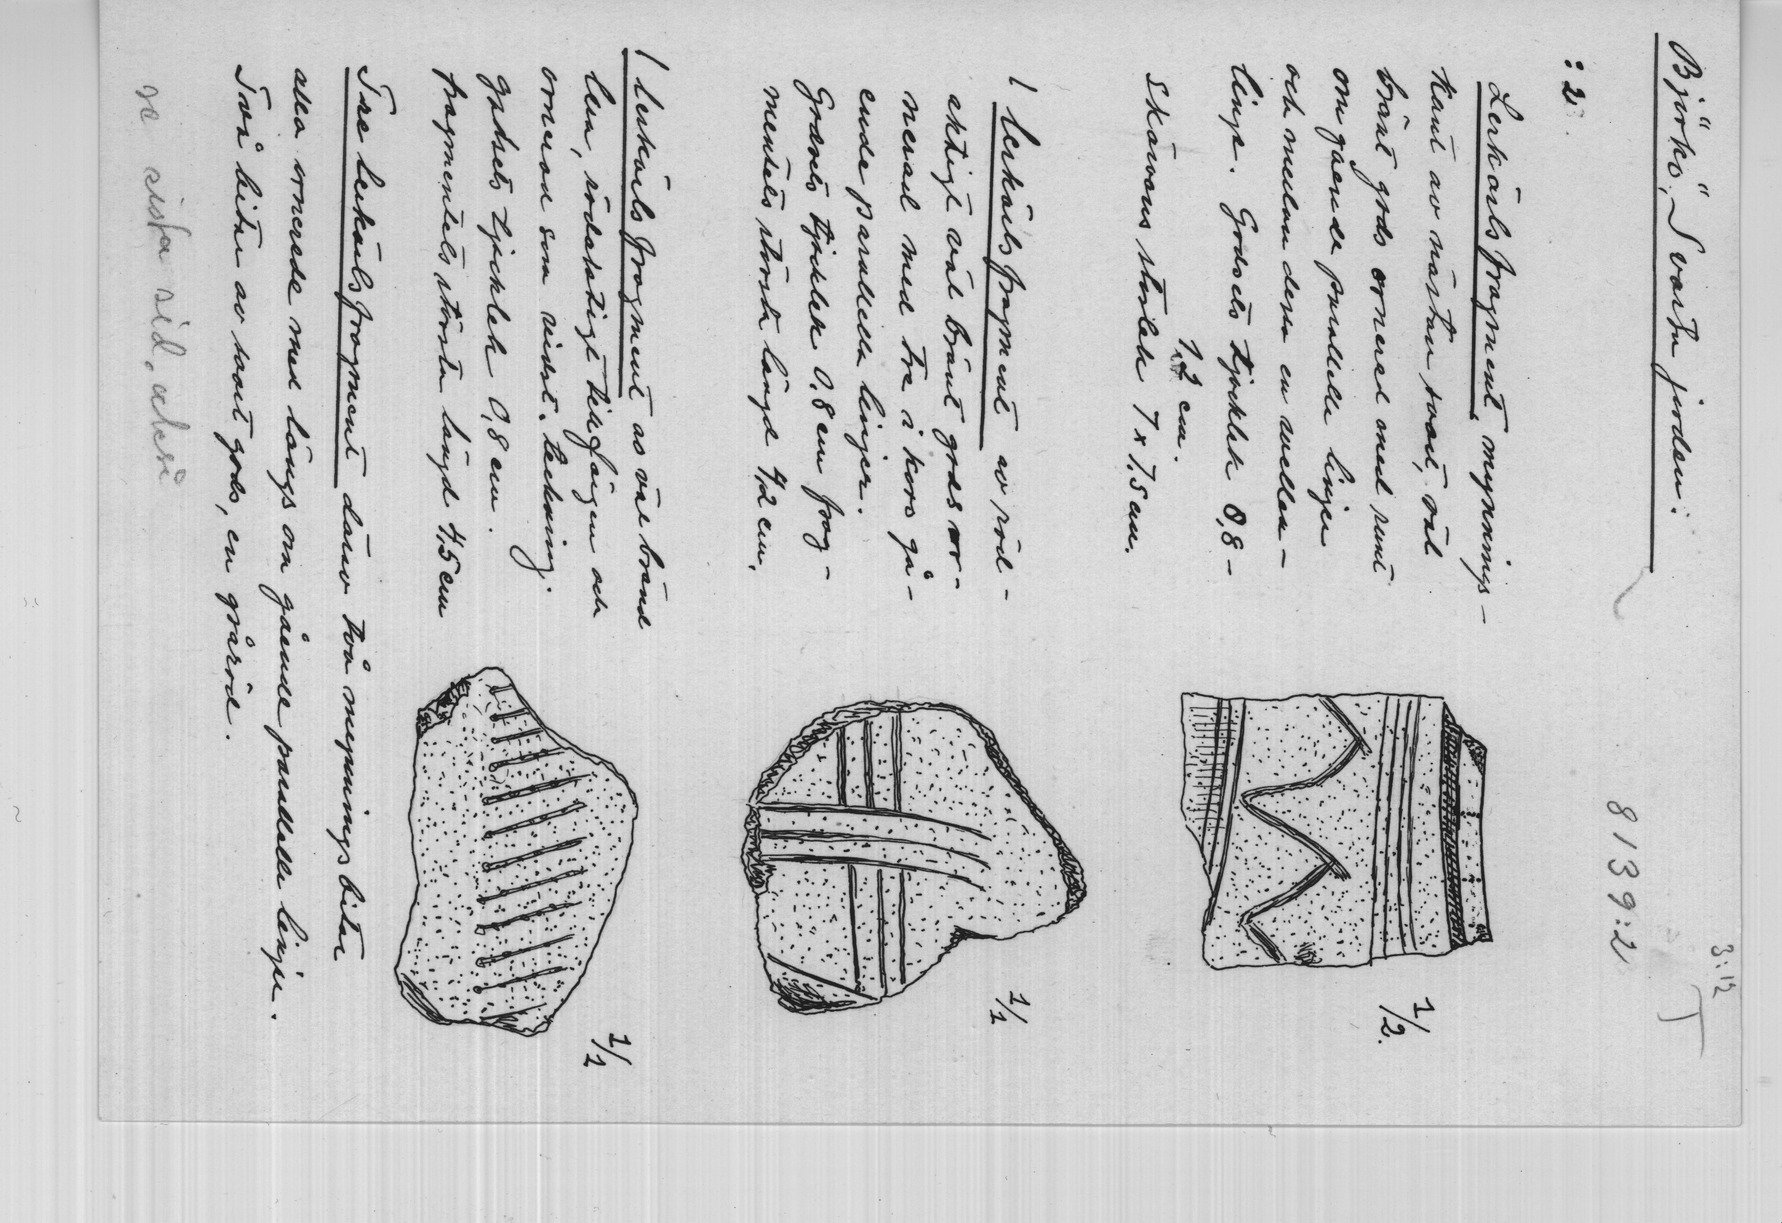 3:12
8139:2
Björkö, "Svarta jorden":
:2.
Lerkärlsfragment, mynnings-
kant av nästan svart, väl
bränt gods ornerad med runt
om gående parallella linjer
och mellan dessa en vellen-
linje. Godsets tjocklek 0,8-
1,2 cm.
Skärvans storlek 7 x 7,5 cm.
1/2.
1 lerkärlsfragment av röd-
aktigt väl bränt gods or-
nerad med tre i kors gå-
ende parallella linjer.
Godsets tjocklek 0,8 cm frag-
mentets största längd 4,2 cm.
1/1
1 lerkärlsfragment av väl bränd
lera, rödaktigt till färgen och
ornerad som vidst. teckning.
Godsets tjocklek 0,8 cm.
fragmentets största längd 4,5 cm
1/1
Tre lerkärlsfragment därav två mynningsbitar
alla ornerade med längs om gående parallella linjer.
Två bitar av svart gods, en gråröd.
se sista sid.